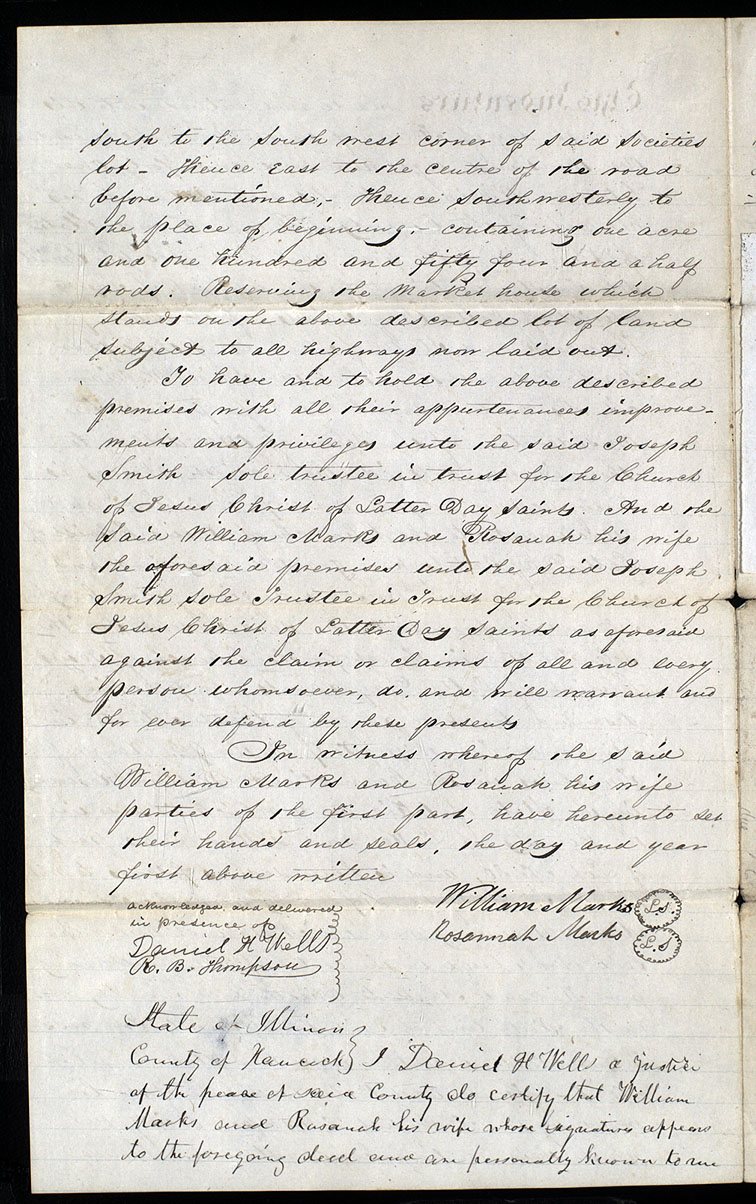 south to the South west corner of said Societies
lot - thence East to the centre of the road
before mentioned, - thence Southwesterly to
the place of beginning. - containing one acre
and one hundred and fifty four and a half
rods. Reserving the Market house which
stands on the above described lot of land
subject to all highways now laid out.
To have and to hold the above described
premises with all their appurtenances improve-
ments and privileges unto the said Joseph
Smith sole trustee in trust for the Church
of Jesus Christ of Latter Day Saints. And the
said William Marks and Rosanah his wife
the aforesaid premises unto the said Joseph
Smith sole Trustee in Trust for the Church of
Jesus Christ of Latter Day Saints as aforesaid
against the claim or claims of all and every
person whomsoever, do, and will warrant and
for ever defend by these presents
In witness whereof the said
William Marks and Rosanah his wife
parties of the first part, have hereunto set
their hands and seals, the day and year
first above written
acknowledged and delivered
in presence of
Daniel H Wells
R. B. Thompson
William Marks L.S
Rosannah Marks L.S
State of Illinois
County of Hancock I Daniel H Well a Justice
of the peace of said County do certify that William
Marks and Rosanah his wife whose signatures appears
to the foregoing deed and are personally known to me